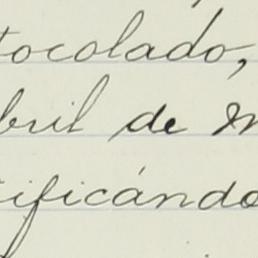 tocolado,
bril de m
ificándo